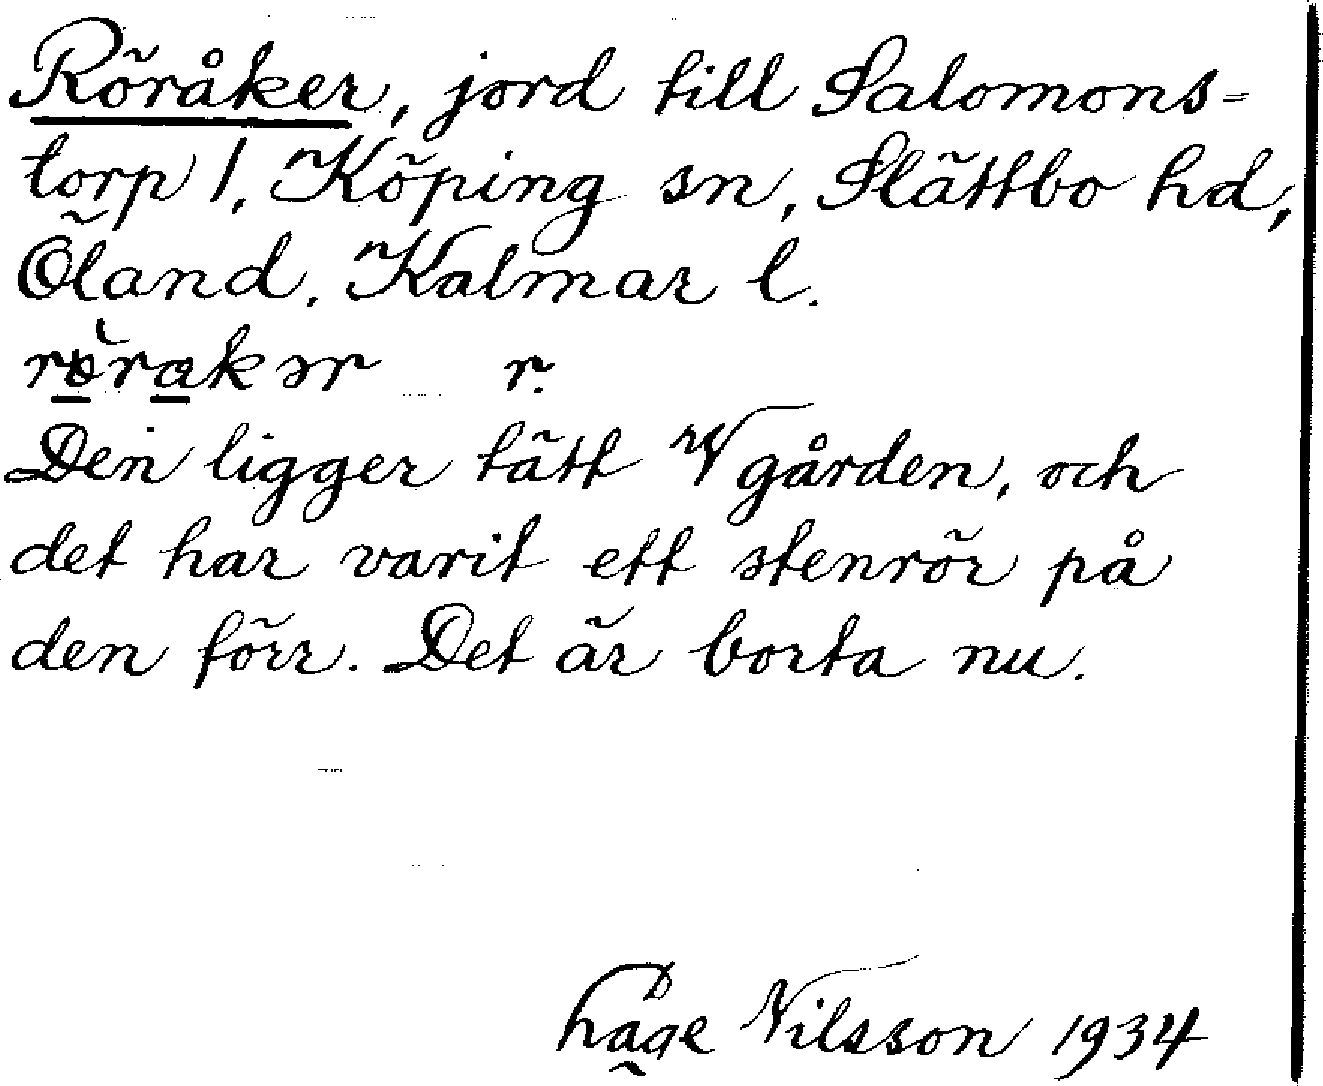 Röråker, jord till Salomons-
torp 1, Köping sn, Slättbo hd,
Öland. Kalmar l.
rörakər r.
Den ligger tätt N gården, och
det har varit ett stenrör på
den förr. Det är borta nu.
Nilsson 1934